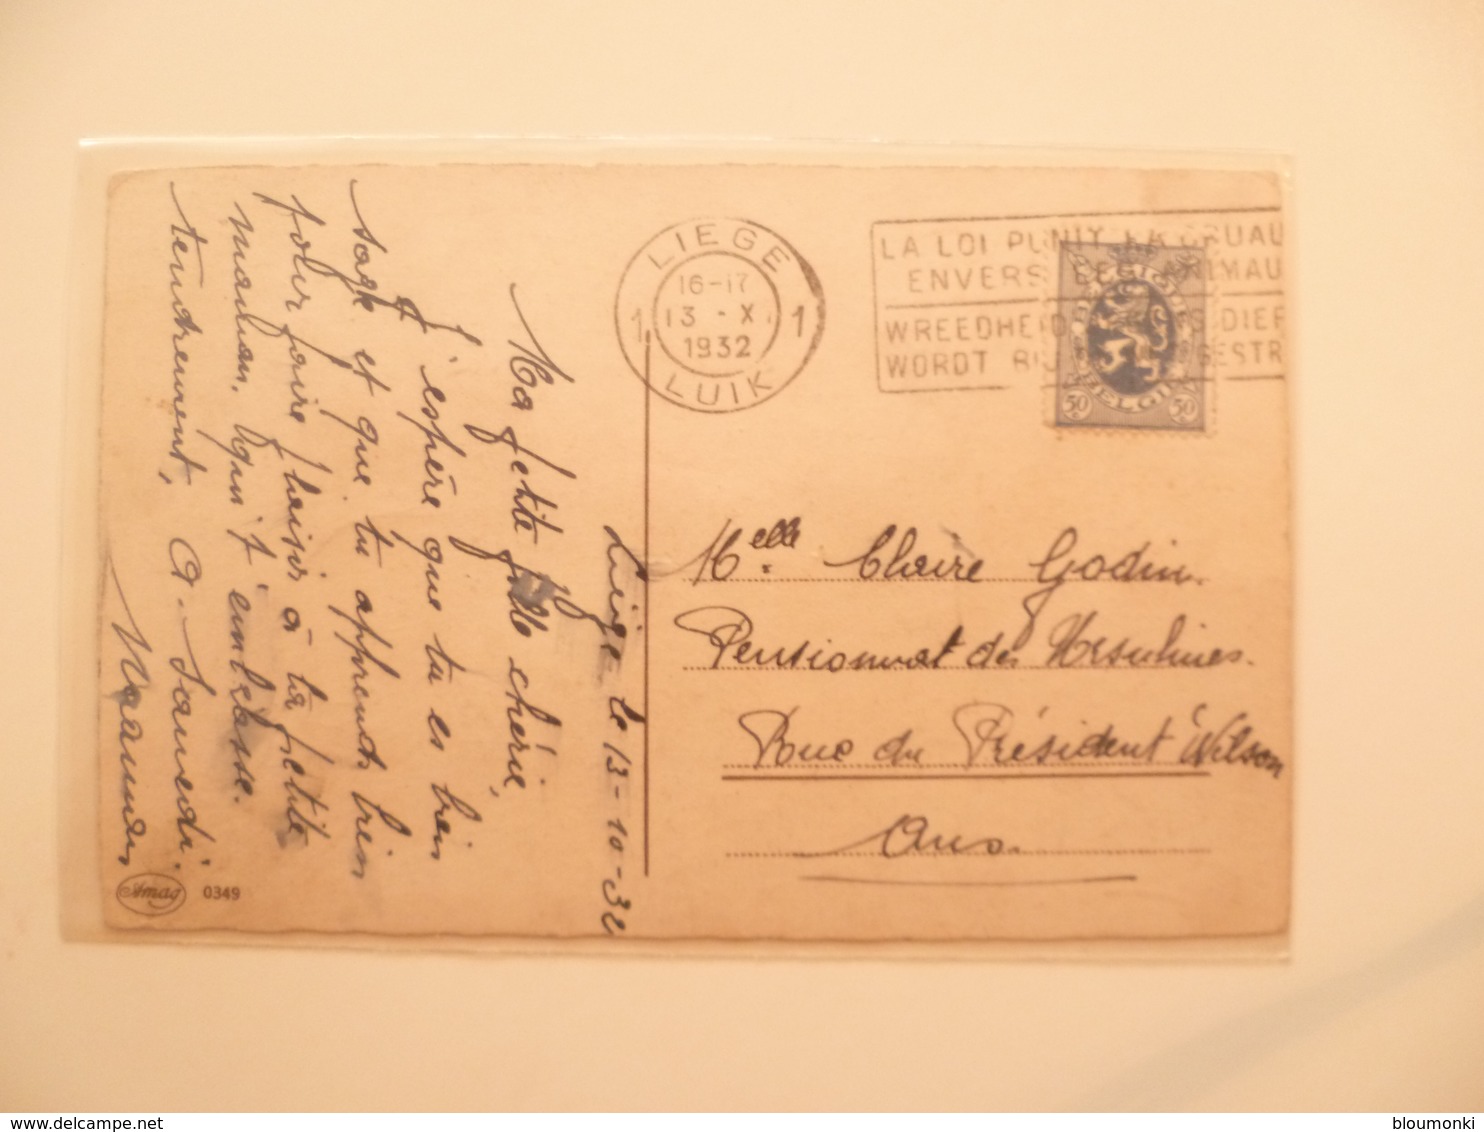 Liège le 13-10-32
Ma petite fille chérie,
J'espère que tu es bien
sage et que tu apprends bien
pour faire plaisir à ta petite
maman, qui t'embrasse
tendrement, A Samedi.
Maman
Amag 0349
LIEGE
16-17
1 13 - X 1
1932
LUIK
LA LOI PUNIT LA CRUAU
ENVERS LES ANIMAU
WREEDHEID DIER
WORDT GESTR
BELGIQUE
BELGIE
50 c 50 c
Melle Claire Godin.
Pensionnat des Ursulines.
Rue du Président Wilson
Ans.
delcampe.net
bloumonki